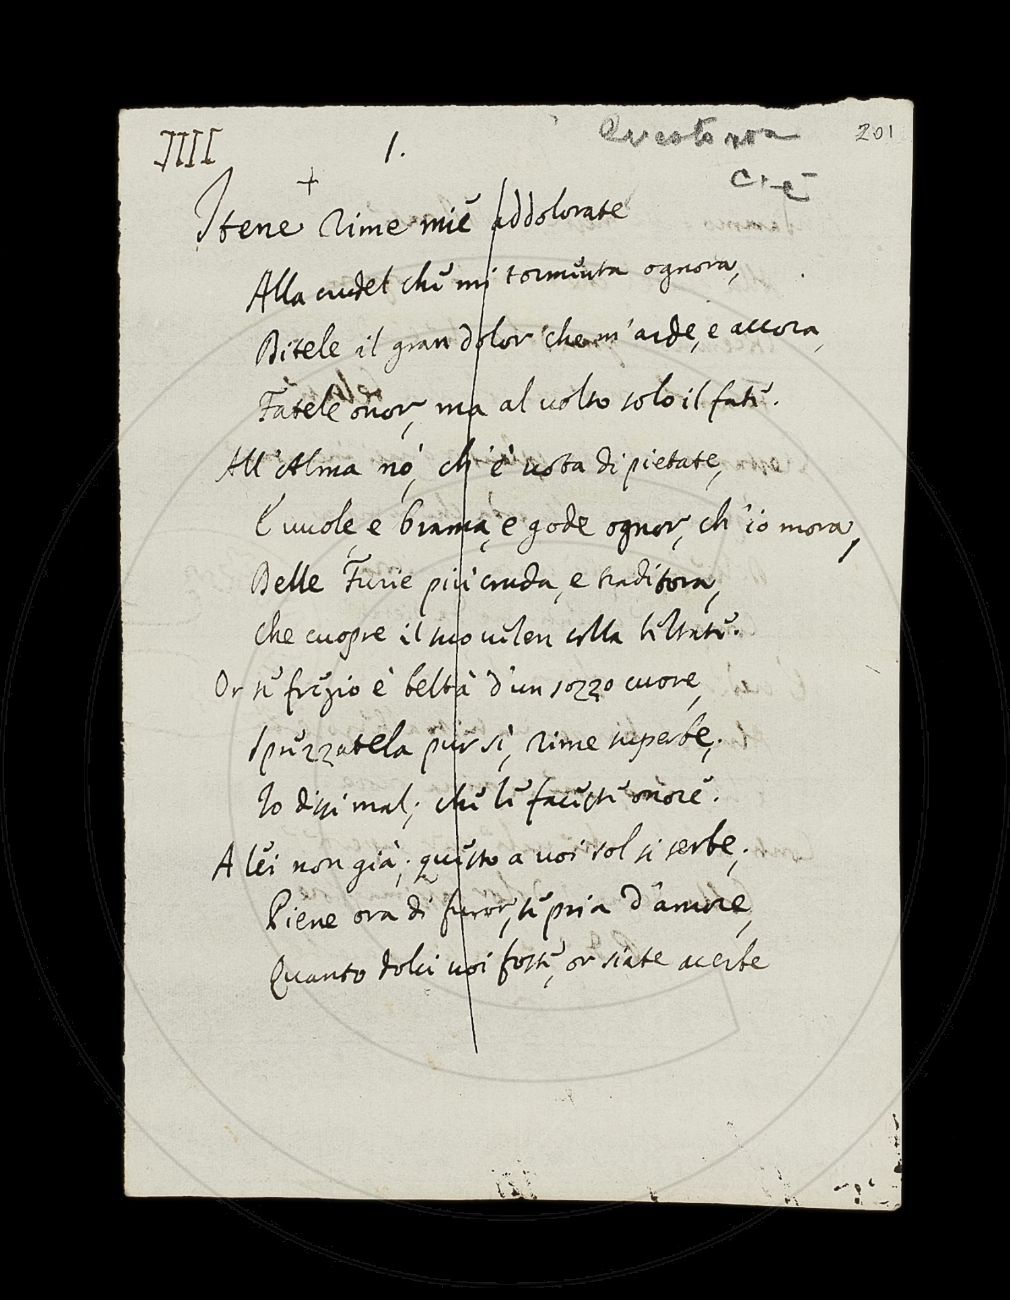 IIII 1. Questo non 201
c'è
+
Itene Rime mie addolorate
Alla crudel che mi tormenta ognora,
Ditele il gran dolor che m'arde, e accora,
Fatele onor, ma al volto solo il fate.
All'Alma nò, ch'è vota di pietate,
E vuole, e brama, e gode ognor, ch'io mora,
Delle Furie più cruda, e traditora,
Che cuopre il suo velen colla beltate.
Or se fregio è beltà d'un sozzo cuore,
Sprezzatela pur sì, rime superbe;
Io dissi mal; che le faceste onore.
A lei non già; questo a voi sol si serbe;
Piene ora di furor, se pria d'amore,
Quanto dolci voi foste, or siate acerbe